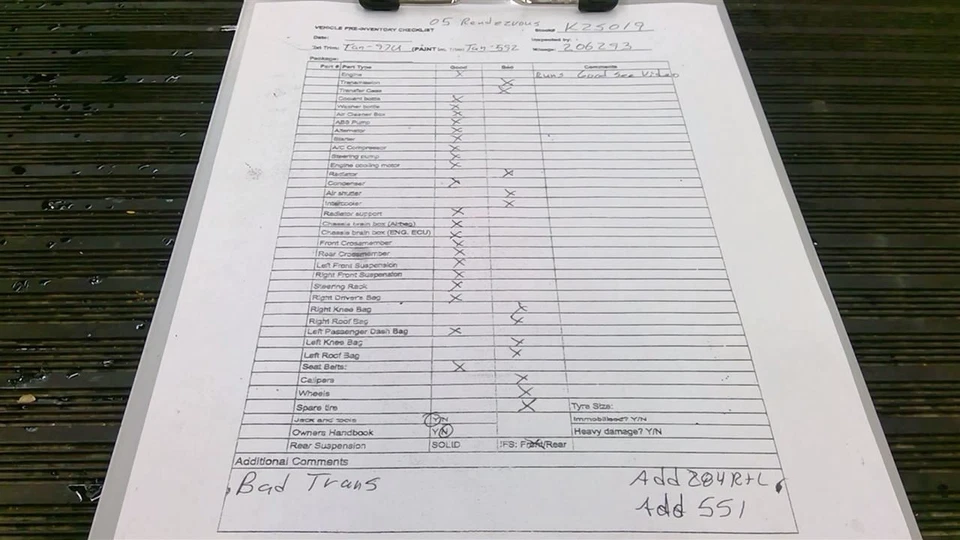 05 Rendezvous
VEHICLE PRE-INVENTORY CHECKLIST Stock# K25019
Date: Inspected by:
Int Trim: Tan-97U (PAINT Tan-552 Mileage: 206293
Package:
Part # Part Type Good Bad Comments
Engine X Runs Good See Video
Transmission X
Transfer Case X
Coolant bottle X
Washer bottle X
Air Cleaner Box X
ABS Pump X
Alternator X
Starter X
A/C Compressor X
Steering pump X
Engine cooling motor X
Radiator X
Condenser X
Air shutter X
Intercooler X
Radiator support X
Chassis brain box (Airbag) X
Chassis brain box (ENG. ECU) X
Front Crossmember X
Rear Crossmember X
Left Front Suspension X
Right Front Suspension X
Steering Rack X
Right Driver's Bag X
Right Knee Bag X
Right Roof Bag X
Left Passenger Dash Bag X
Left Knee Bag X
Left Roof Bag X
Seat Belts: X
Calipers X
Wheels X
Spare tire X Tyre Size:
Jack and tools Y/N Immobilised? Y/N
Owners Handbook Y/N Heavy damage? Y/N
Rear Suspension SOLID IFS: Front/Rear
Additional Comments
Bad Trans Add 284 R+L
Add 551